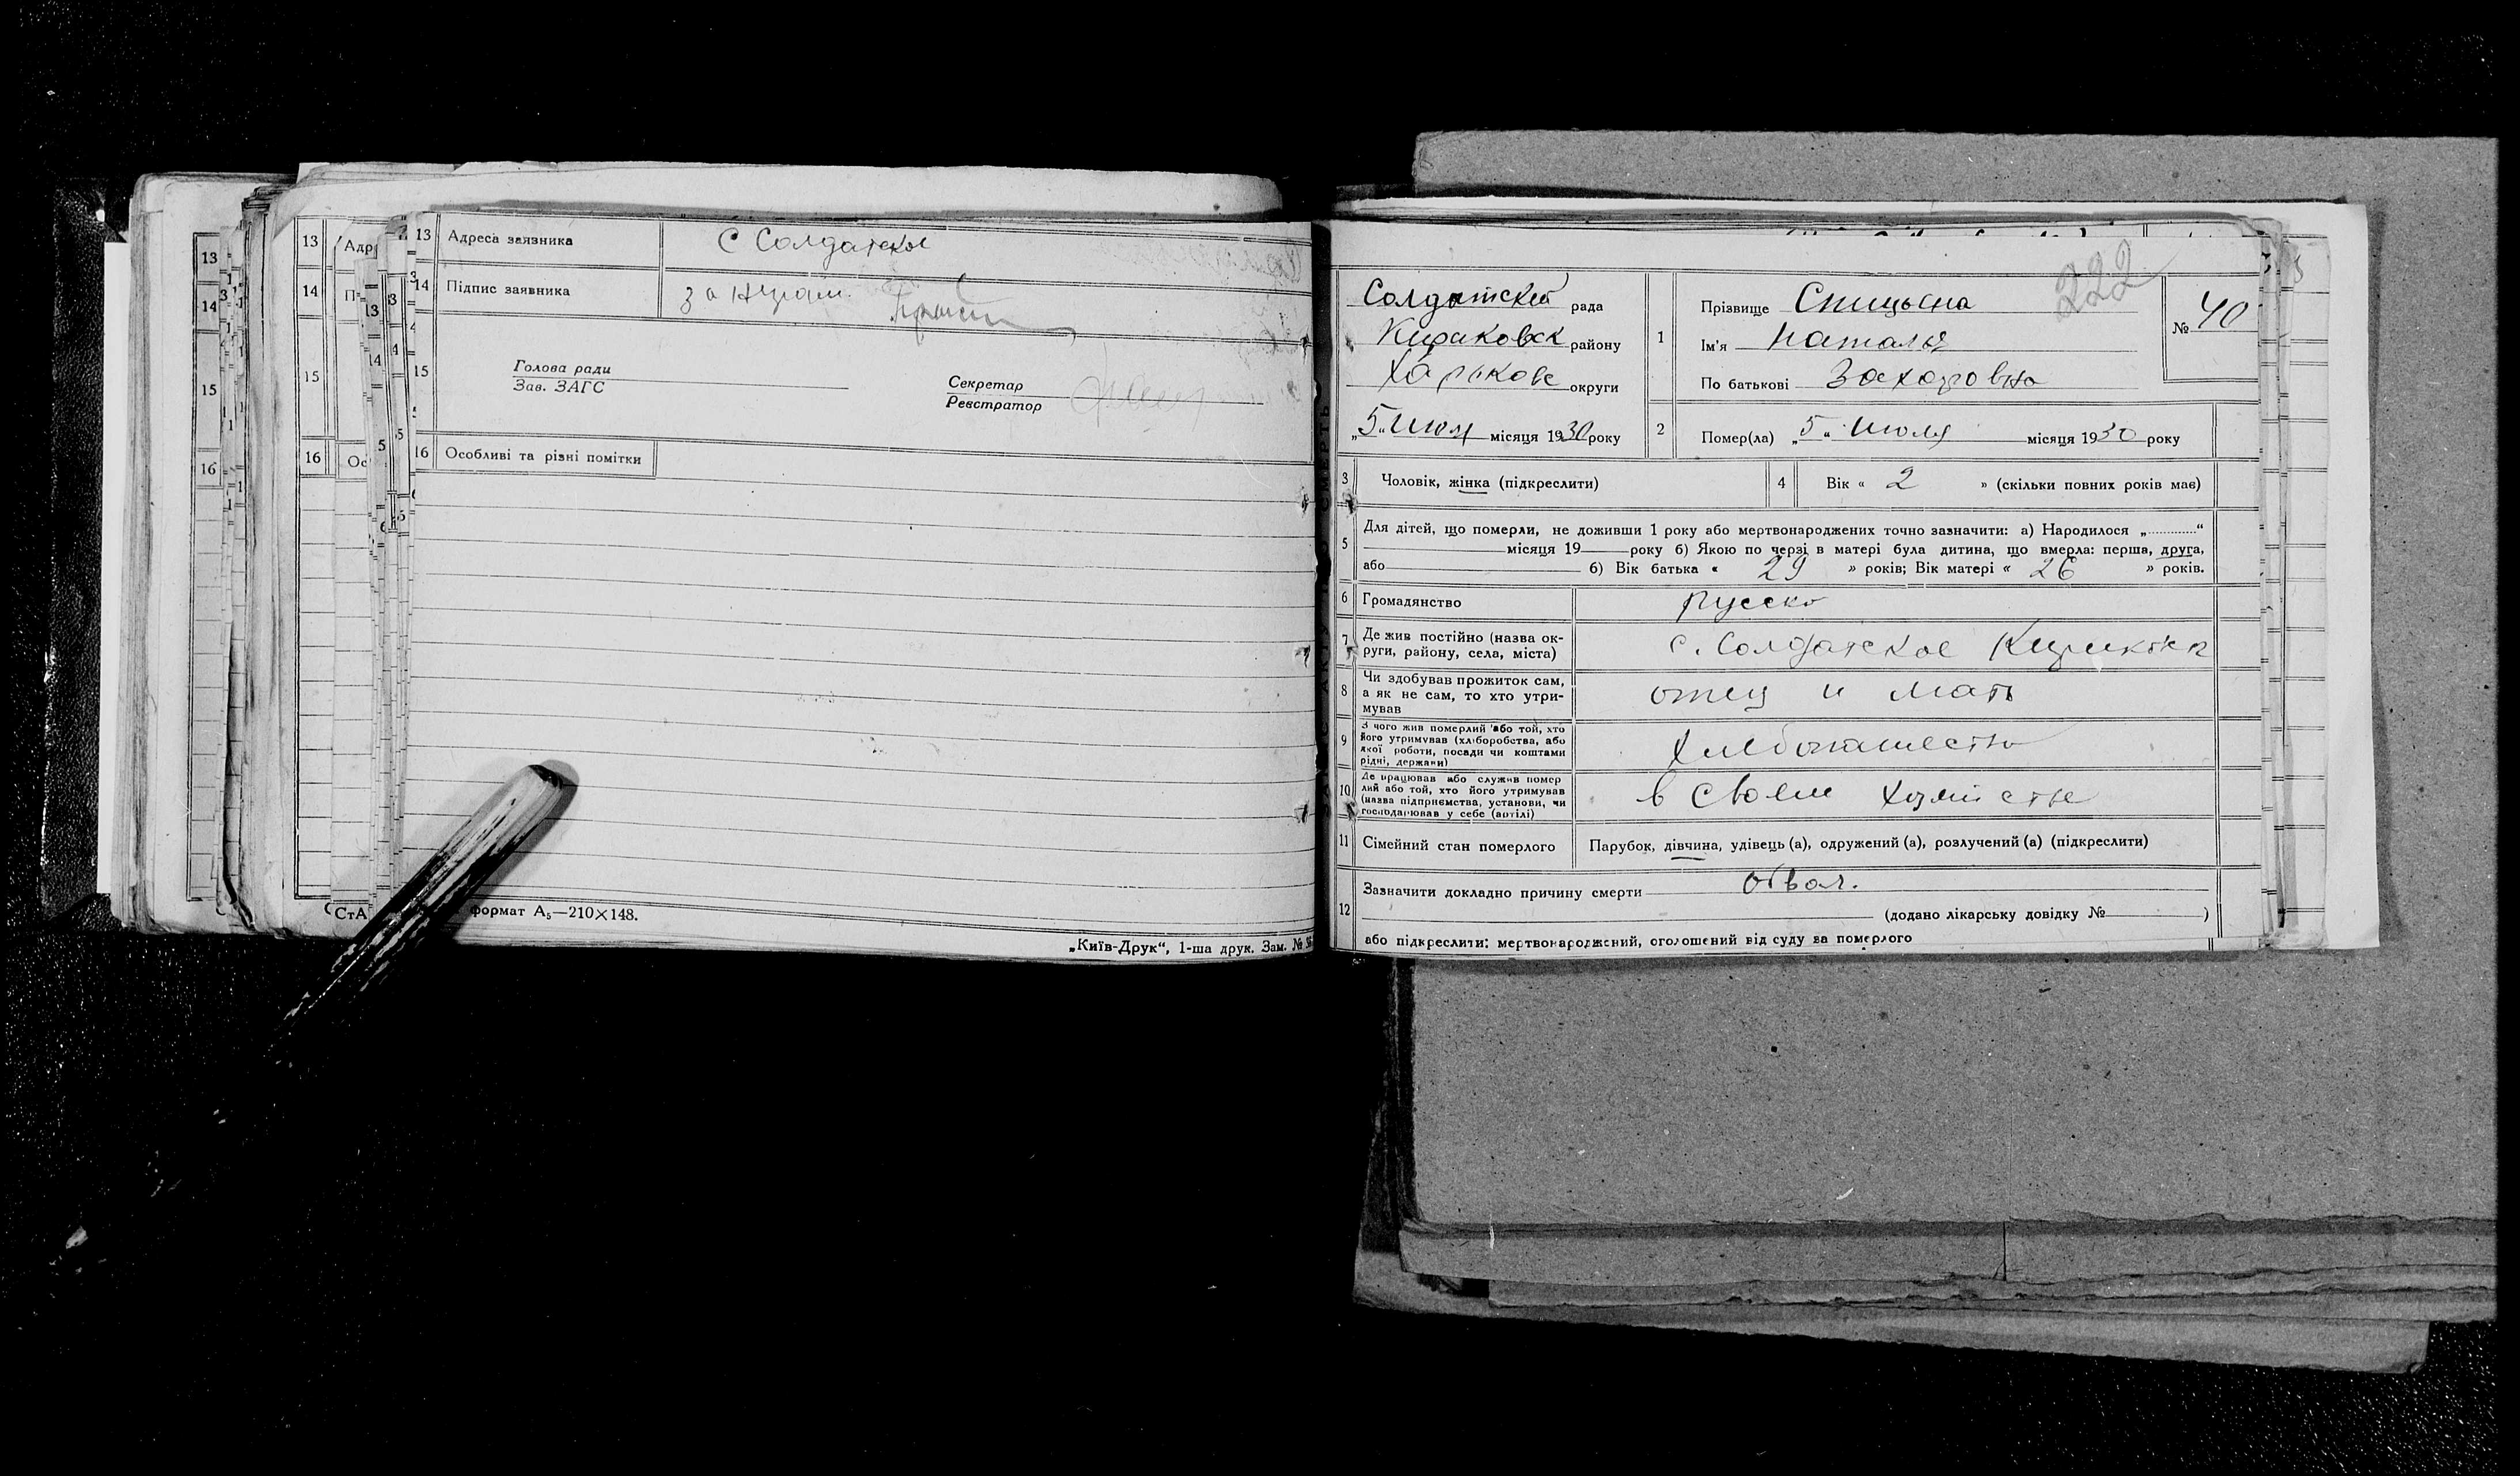 13 Адреса заявника С Солдатское
14 Підпис заявника за
15 Голова ради
Зав. ЗАГС
Секретар
Реєстратор
16 Особливі та різні помітки
СтА формат А₅—210×148.
„Київ-Друк“, 1-ша друк. Зам. №
222
Солдатской рада
району
Харькове округи
„5“ Июля місяця 1930 року
1 Прізвище Спицына
Ім'я Наталья
По батькові Захаровна
№ 40
2 Помер(ла) „5“ Июля місяця 1930 року
3 Чоловік, жінка (підкреслити)
4 Вік « 2 » (скільки повних років має)
5 Для дітей, що померли, не доживши 1 року або мертвонароджених точно зазначити: а) Народилося „..........“
місяця 19 року б) Якою по черзі в матері була дитина, що вмерла: перша, друга,
або б) Вік батька « 29 » років; Вік матері « 26 » років.
6 Громадянство русско
7 Де жив постійно (назва ок-
руги, району, села, міста) с. Солдатское
8 Чи здобував прожиток сам,
а як не сам, то хто утри-
мував отец и мать
9 З чого жив померлий або той, хто
його утримував (хліборобства, або
якої роботи, посади чи коштами
рідні, держави) Хлебопашество
10 Де працював або служив помер
лий або той, хто його утримував
(назва підприємства, установи, чи
господарював у себе (артілі) в своем
11 Сімейний стан померлого Парубок, дівчина, удівець (а), одружений (а), розлучений (а) (підкреслити)
12 Зазначити докладно причину смерти
(додано лікарську довідку № )
або підкреслити: мертвонароджений, оголошений від суду за померлого